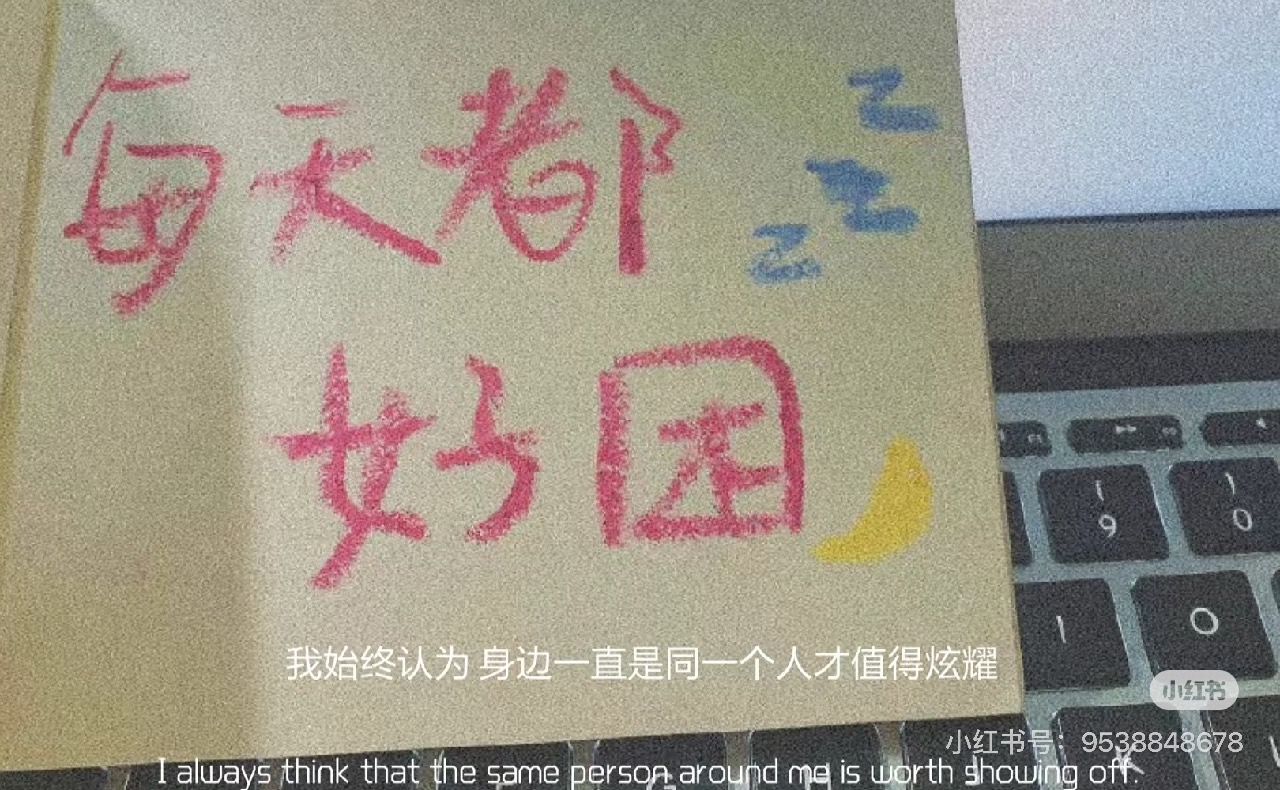 每天都
z
z
z
好困
我始终认为 身边一直是同一个人才值得炫耀
小红书
小红书号：9538848678
I always think that the same person around me is worth showing off.
9
0
I
O
K